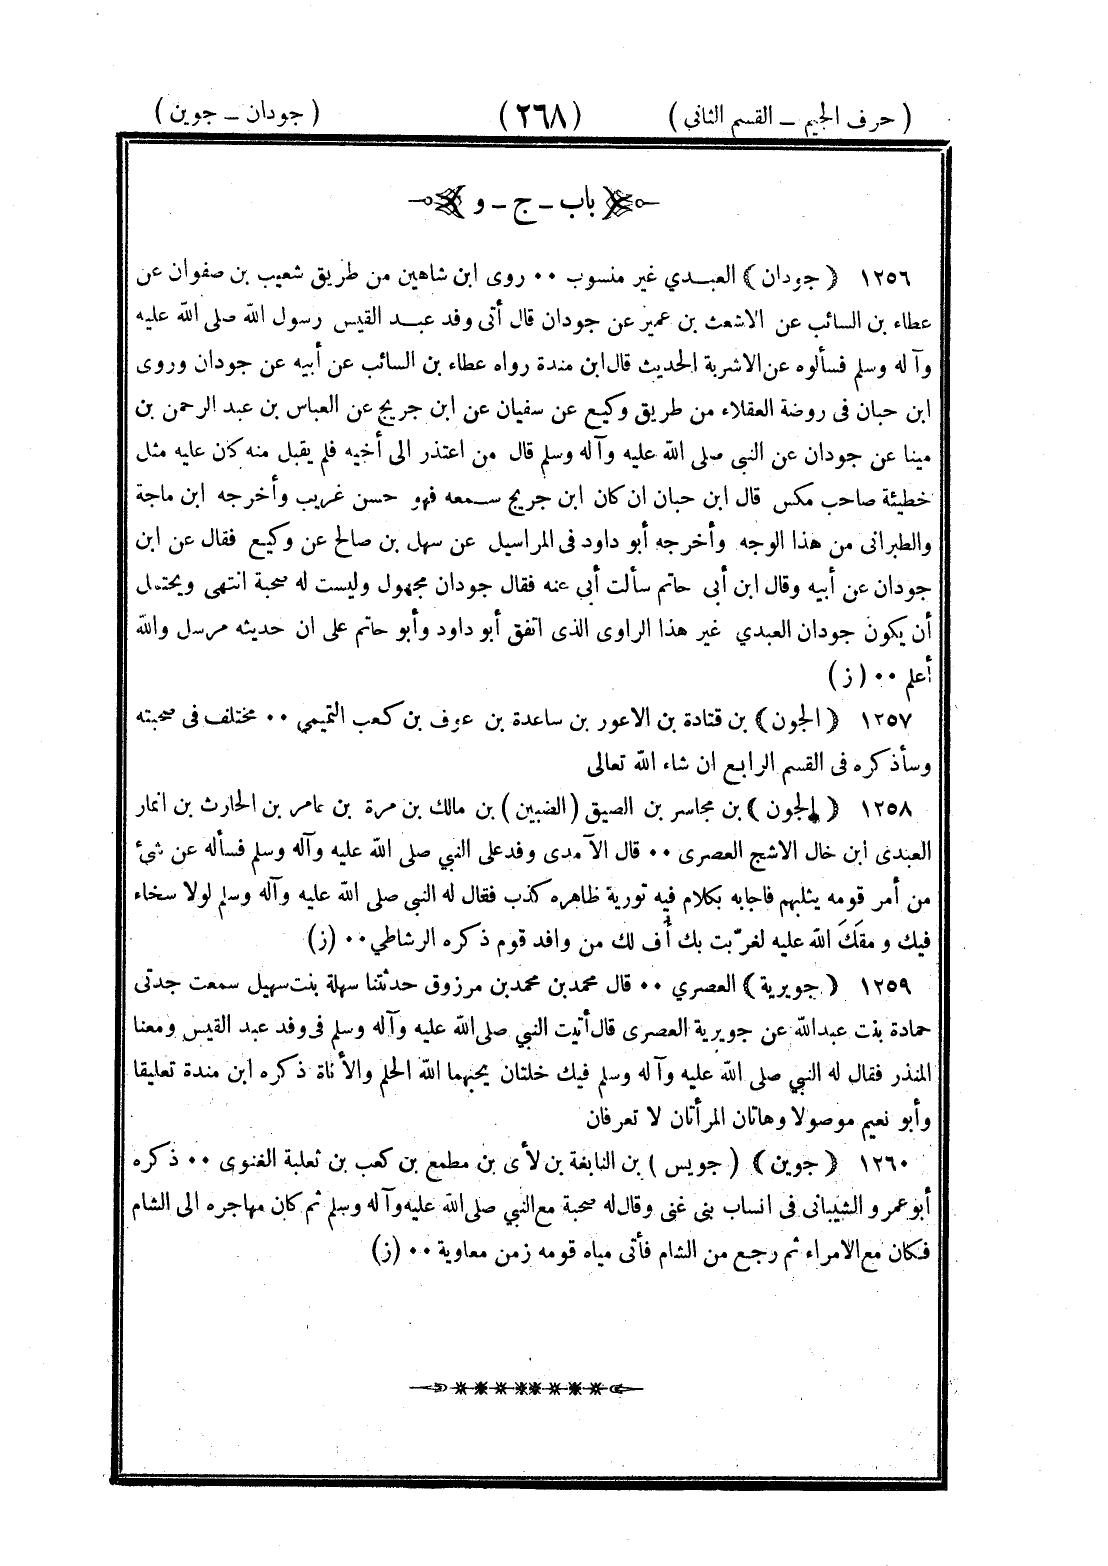 ( حرف الجيم – القسم الثانى ) (٢٦٨) ( جودان – جوين )
باب – ج – و
١٢٥٦ ﴿ جودان ﴾ العبدي غير منسوب ۰۰ روى ابن شاهين من طريق شعيب بن صفوان عن
عطاء بن السائب عن الاشعث بن عمير عن جودان قال أتى وفد عبد القيس رسول الله صلى الله عليه
وآله وسلم فسألوه عن الاشربة الحديث قال ابن مندة رواه عطاء بن السائب عن أبيه عن جودان وروى
ابن حبان فى روضة العقلاء من طريق وكيع عن سفيان عن ابن جريج عن العباس بن عبد الرحمن بن
مينا عن جودان عن النبى صلى الله عليه وآله وسلم قال من اعتذر الى أخيه فلم يقبل منه كان عليه مثل
خطيئة صاحب مكس قال ابن حبان ان كان ابن جريج سمعه فهو حسن غريب وأخرجه ابن ماجة
والطبرانى من هذا الوجه وأخرجه أبو داود فى المراسيل عن سهل بن صالح عن وكيع فقال عن ابن
جودان عن أبيه وقال ابن أبى حاتم سألت أبي عنه فقال جودان مجهول وليست له صحبة انتهى ويحتمل
أن يكون جودان العبدي غير هذا الراوى الذى اتفق أبو داود وأبو حاتم على ان حديثه مرسل والله
أعلم ۰۰ ( ز )
١٢٥٧ ﴿ الجون ﴾ بن قتادة بن الاعور بن ساعدة بن عوف بن كعب التميمي ۰۰ مختلف فى صحبته
وسأذكره فى القسم الرابع ان شاء الله تعالى
١٢٥٨ ﴿ الجون ﴾ بن مجاسر بن الصيق (الضبين) بن مالك بن مرة بن عامر بن الحارث بن انمار
العبدى ابن خال الاشج العصرى ۰۰ قال الآمدى وفد على النبي صلى الله عليه وآله وسلم فسأله عن شئ
من أمر قومه يثلبهم فاجابه بكلام فيه تورية ظاهره كذب فقال له النبى صلى الله عليه وآله وسلم لولا سخاء
فيك و مقَكَ الله عليه لغرّبت بك أُف لك من وافد قوم ذكره الرشاطي ۰۰ (ز)
١٢٥٩ ﴿ جويرية ﴾ العصري ۰۰ قال محمد بن محمد بن مرزوق حدثتنا سهلة بنت سهيل سمعت جدتى
حمادة بنت عبدالله عن جويرية العصرى قال أتيت النبي صلى الله عليه وآله وسلم فى وفد عبد القيس ومعنا
المنذر فقال له النبي صلى الله عليه وآله وسلم فيك خلتان يحبهما الله الحلم والأناة ذكره ابن مندة تعليقا
وأبو نعيم موصولا وهاتان المرأتان لا تعرفان
١٢٦٠ ﴿ جوين ﴾ ( جويس ) بن النابغة بن لأى بن مطمع بن كعب بن ثعلبة الغنوى ۰۰ ذكره
أبو عمرو الشيبانى فى انساب بنى غنى وقال له صحبة مع النبي صلى الله عليه وآله وسلم ثم كان مهاجره الى الشام
فكان مع الامراء ثم رجع من الشام فأتى مياه قومه زمن معاوية ۰۰ (ز)